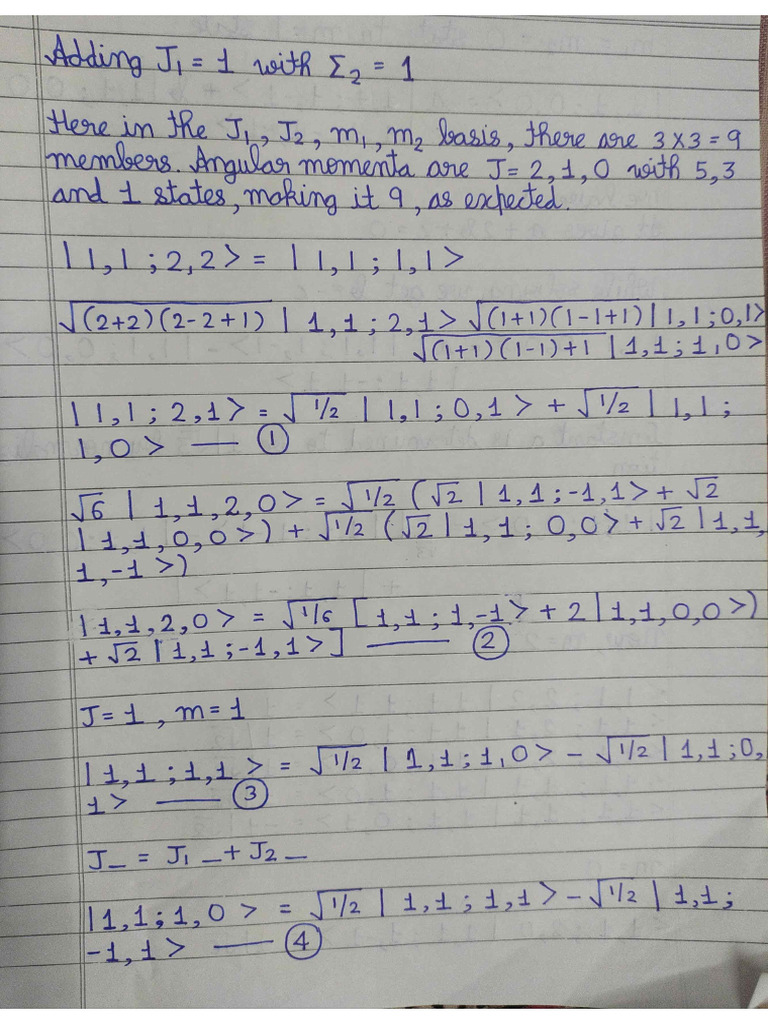 Adding J₁ = 1 with Σ₂ = 1
Here in the J₁, J₂, m₁, m₂ basis, there are 3×3 = 9
members. Angular momenta are J = 2, 1, 0 with 5, 3
and 1 states, making it 9, as expected.
|1,1;2,2> = |1,1;1,1>
√(2+2)(2-2+1) |1,1;2,1> √(1+1)(1-1+1) |1,1;0,1>
√(1+1)(1-1)+1 |1,1;1,0>
|1,1;2,1> = √1/2 |1,1;0,1> + √1/2 |1,1;
1,0> —— ①
√6 |1,1,2,0> = √1/2 (√2 |1,1;-1,1> + √2
|1,1,0,0>) + √1/2 (√2 |1,1;0,0> + √2 |1,1,
1,-1>)
|1,1,2,0> = √1/6 [1,1;1,-1> + 2|1,1,0,0>)
+ √2 |1,1;-1,1>] —— ②
J=1, m=1
|1,1;1,1> = √1/2 |1,1;1,0> - √1/2 |1,1;0,
1> —— ③
J_ = J₁_ + J₂_
|1,1;1,0> = √1/2 |1,1;1,1> - √1/2 |1,1;
-1,1> —— ④